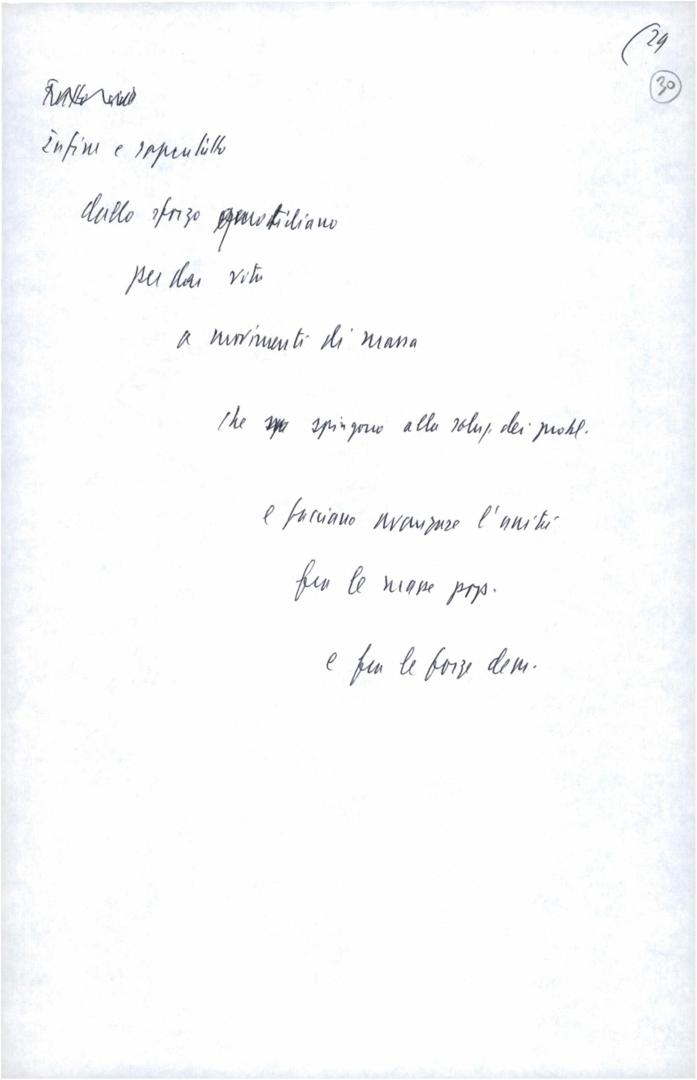 (29
30
Infine e soprattutto
dallo sforzo quotidiano
per dar vita
a movimenti di massa
che spingono alla soluz. dei probl.
e facciano avanzare l'unità
fra le masse pop.
e fra le forze dem.